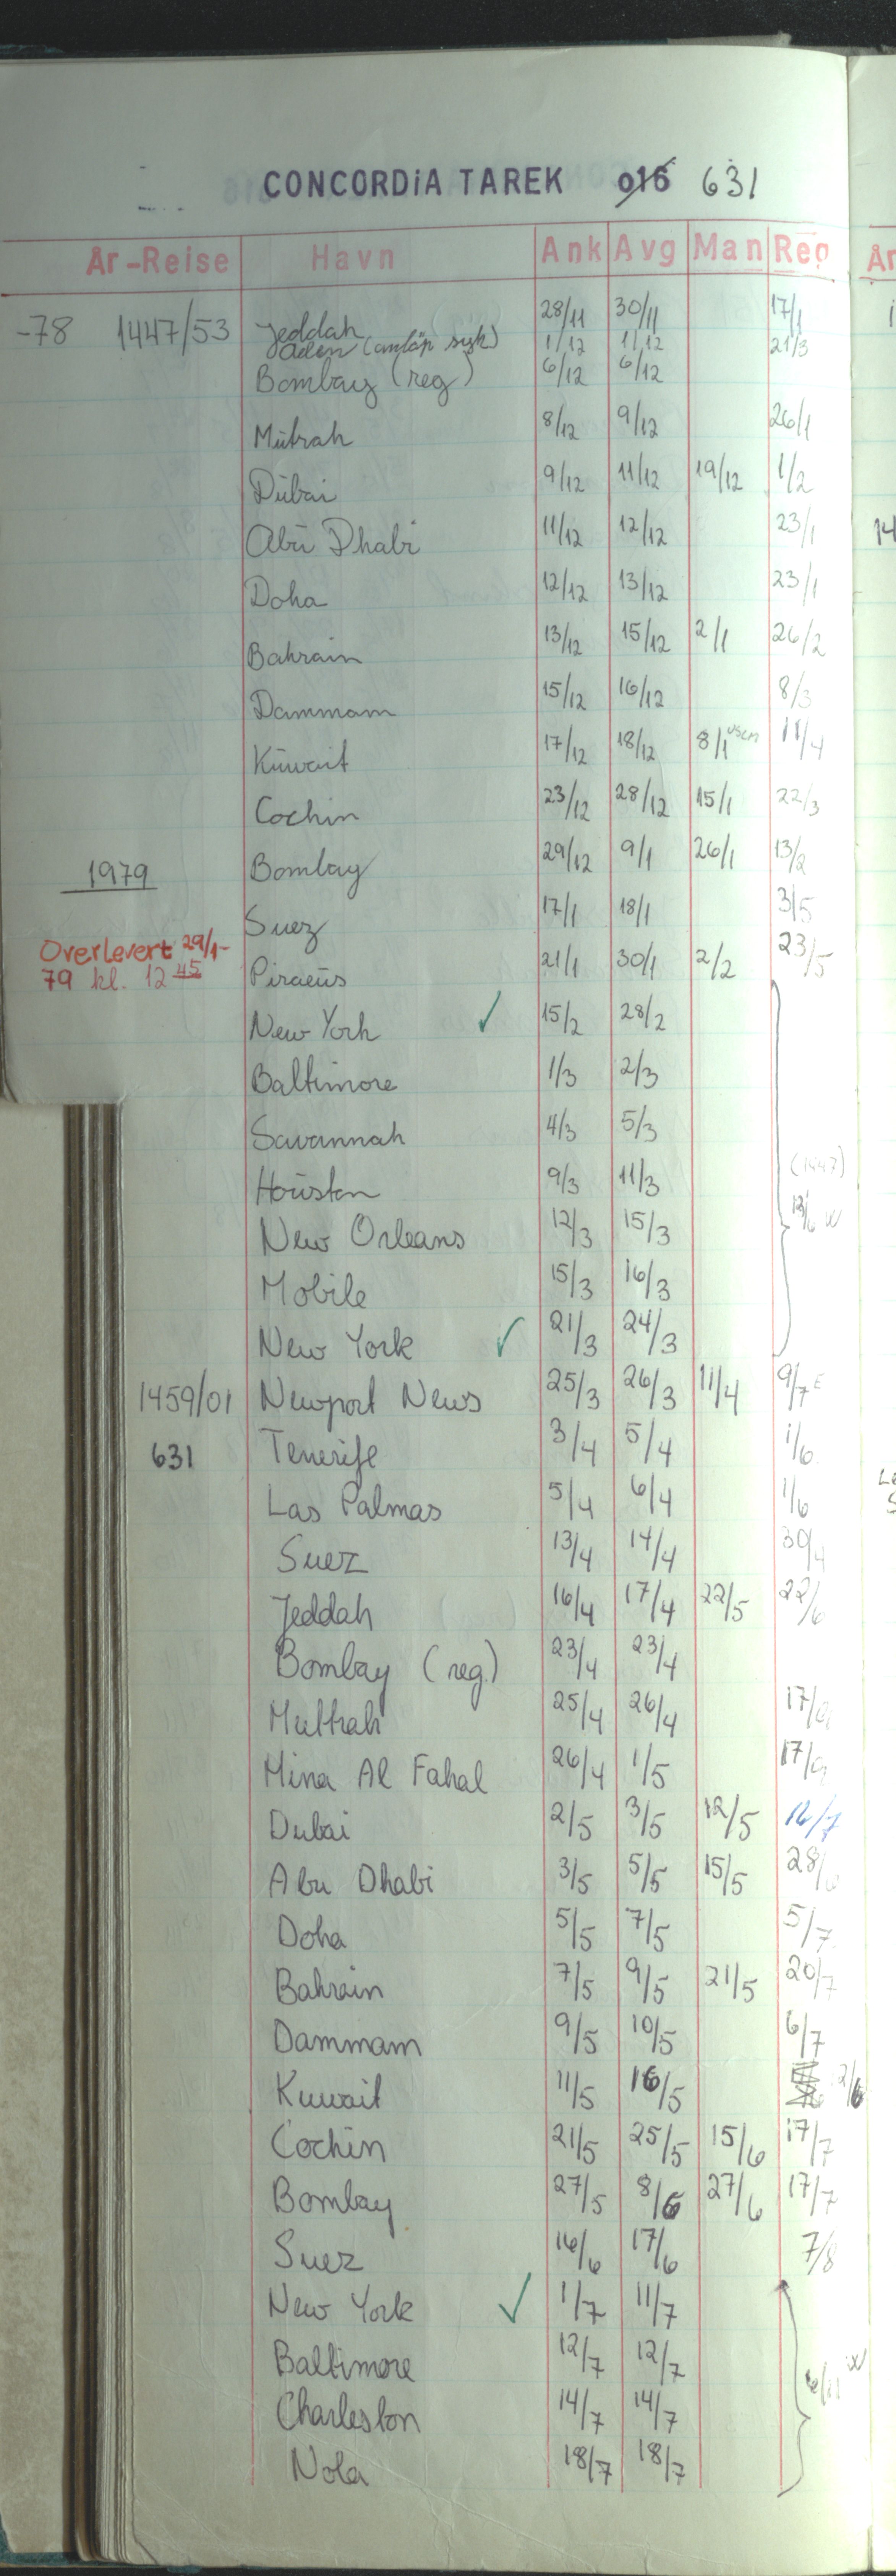 CONCORDiA TAREK 016 631
År-Reise Havn Ank Avg Man Reg År
-78 1447/53 Jeddah 28/11 30/11 17/1
Aden (anløp syk) 1/12 1/12 21/3
Bombay (reg) 6/12 6/12
Mutrah 8/12 9/12 26/1
Dubai 9/12 11/12 19/12 1/2
Abu Dhabi 11/12 12/12 23/1 14
Doha 12/12 13/12 23/1
Bahrain 13/12 15/12 2/1 26/2
Dammam 15/12 16/12 8/3
Kuwait 17/12 18/12 8/1 11/4
Cochin 23/12 28/12 15/1 22/3
1979 Bombay 29/12 9/1 26/1 13/2
Suez 17/1 18/1 3/5
Overlevert 29/1-
79 kl. 12 45 Piraeus 21/1 30/1 2/2 23/5
New York ✓ 15/2 28/2
Baltimore 1/3 2/3
Savannah 4/3 5/3
Houston 9/3 11/3 (1447)
New Orleans 12/3 15/3
Mobile 15/3 16/3
New York ✓ 21/3 24/3
1459/01 Newport News 25/3 26/3 11/4 9/7 E
631 Tenerife 3/4 5/4 1/6
Las Palmas 5/4 6/4 1/6
Suez 13/4 14/4 30/4
Jeddah 16/4 17/4 22/5 22/6
Bombay (reg) 23/4 23/4
Muttrah 25/4 26/4
Mina Al Fahal 26/4 1/5
Dubai 2/5 3/5 12/5 16/7
Abu Dhabi 3/5 5/5 15/5
Doha 5/5 7/5 5/7
Bahrain 7/5 9/5 21/5 20/7
Dammam 9/5 10/5 6/7
Kuwait 11/5 16/5 2/6
Cochin 21/5 25/5 15/6 17/7
Bombay 27/5 8/6 27/6 17/7
Suez 16/6 17/6 7/8
New York ✓ 1/7 11/7
Baltimore 12/7 12/7
Charleston 14/7 14/7
Nola 18/7 18/7